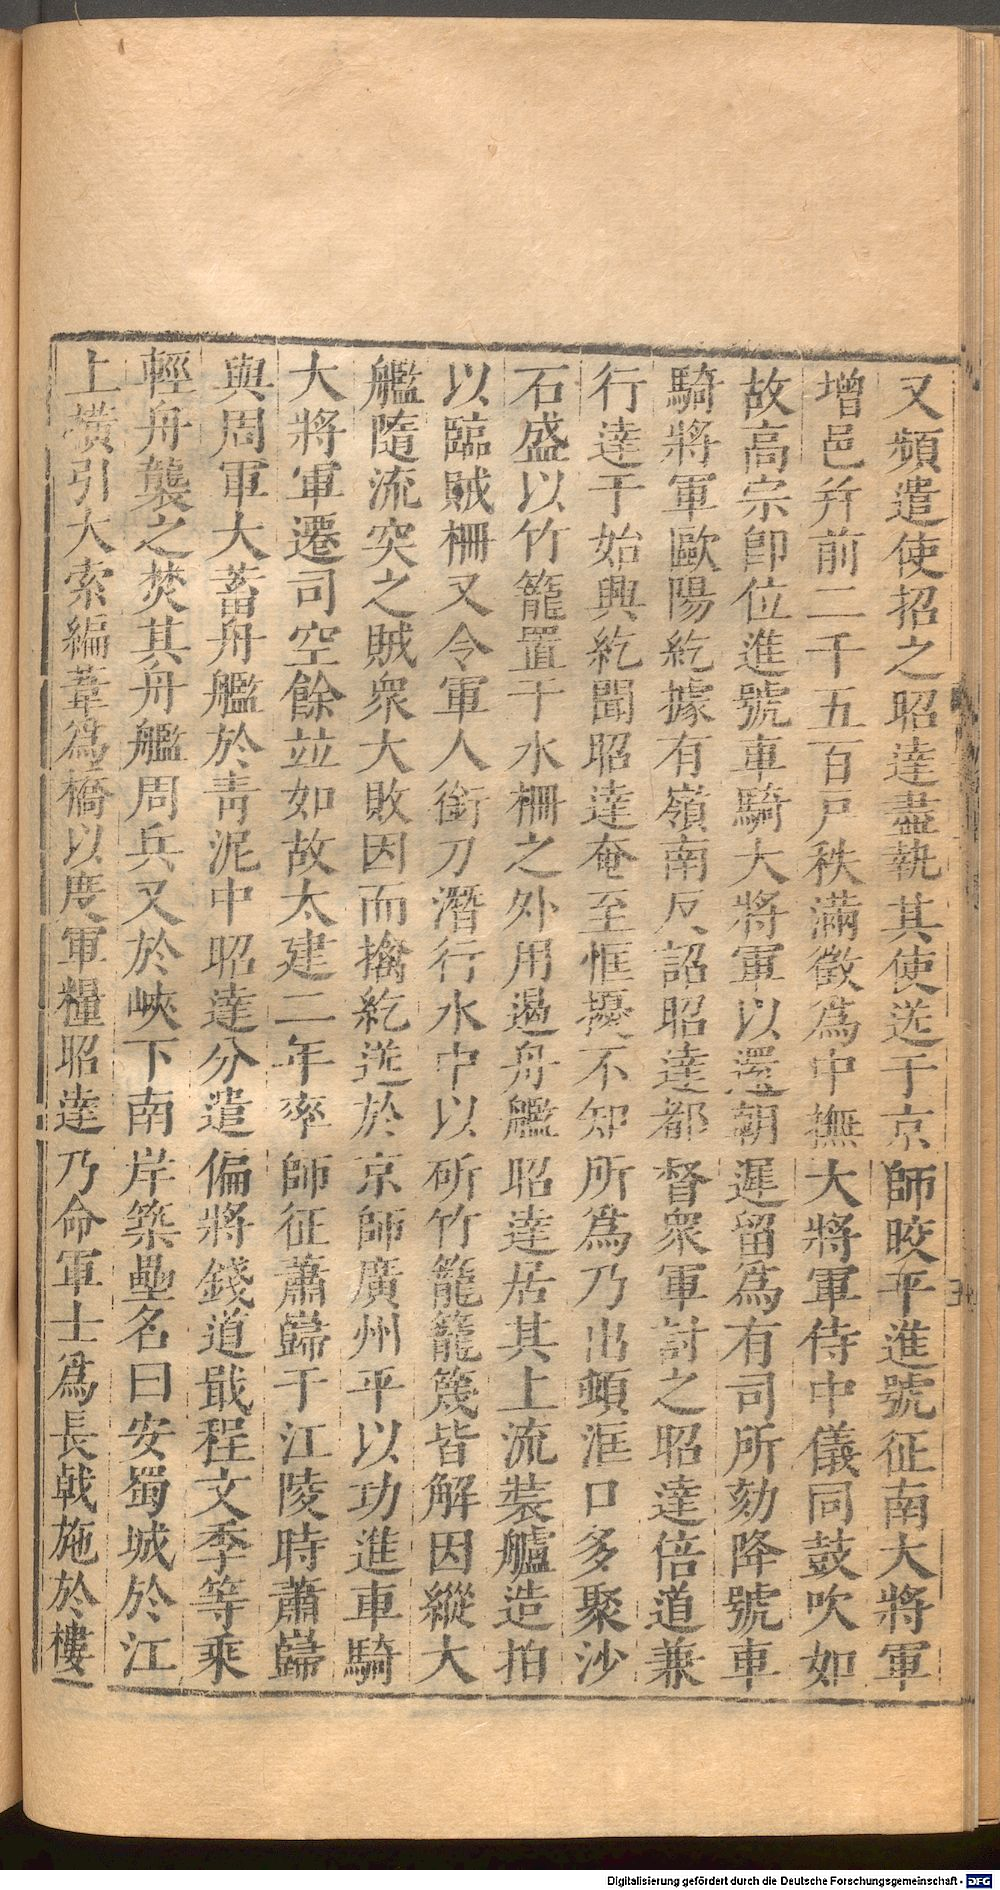 又頻遣使招之昭達盡執其使送于京師皎平進號征南大將軍
增邑幷前二千五百戸秩滿徵為中撫大將軍侍中儀同鼓吹如
故高宗卽位進號車騎大將軍以還朝遲留為有司所劾降號車
騎將軍歐陽紇據有嶺南反詔昭達都督衆軍討之昭達倍道兼
行達于始興紇聞昭達奄至恇擾不知所為乃出頓洭口多聚沙
石盛以竹籠置于水柵之外用遏舟艦昭達居其上流裝艫造拍
以臨賊柵又令軍人銜刀潛行水中以斫竹籠籠篾皆解因縱大
艦隨流突之賊衆大敗因而擒紇送於京師廣州平以功進車騎
大將軍遷司空餘竝如故太建二年率師征蕭巋于江陵時蕭巋
與周軍大蓄舟艦於靑泥中昭達分遣偏將錢道戢程文季等乘
輕舟襲之焚其舟艦周兵又於峽下南岸築壘名曰安蜀城於江
上橫引大索編葦為橋以度軍糧昭達乃命軍士為長戟施於樓
Digitalisierung gefördert durch die Deutsche Forschungsgemeinschaft - DFG